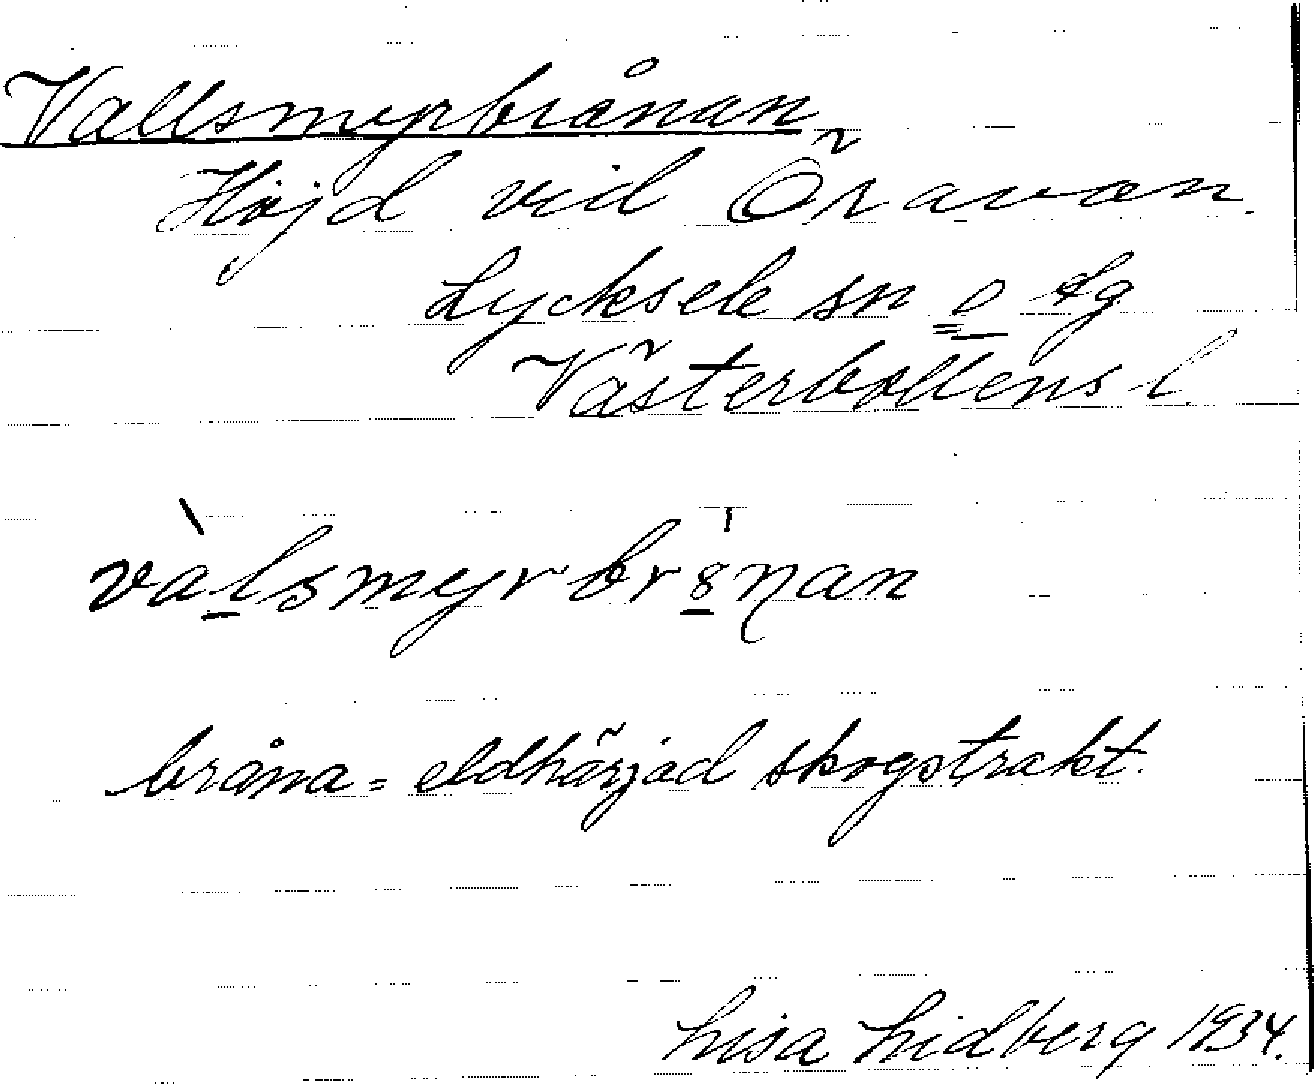 Vallsmyrbrånan
Höjd vid Öravan.
Lycksele sn o lg
Västerbottens l.
valsmyrbrånan
bråna = eldhärjad skogstrakt.
Lisa Lidberg 1934.